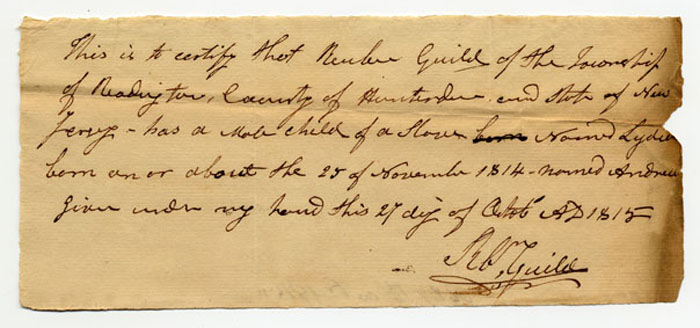 This is to certify that Reuben Guild of the Township
of Readington, County of Hunterdon and State of New
Jersey - has a Male child of a Slave born Named Lydia
born on or about the 25 of November 1814 - named Andrew
Given under my hand this 27 day of Octbr AD 1815
Rbn Guild